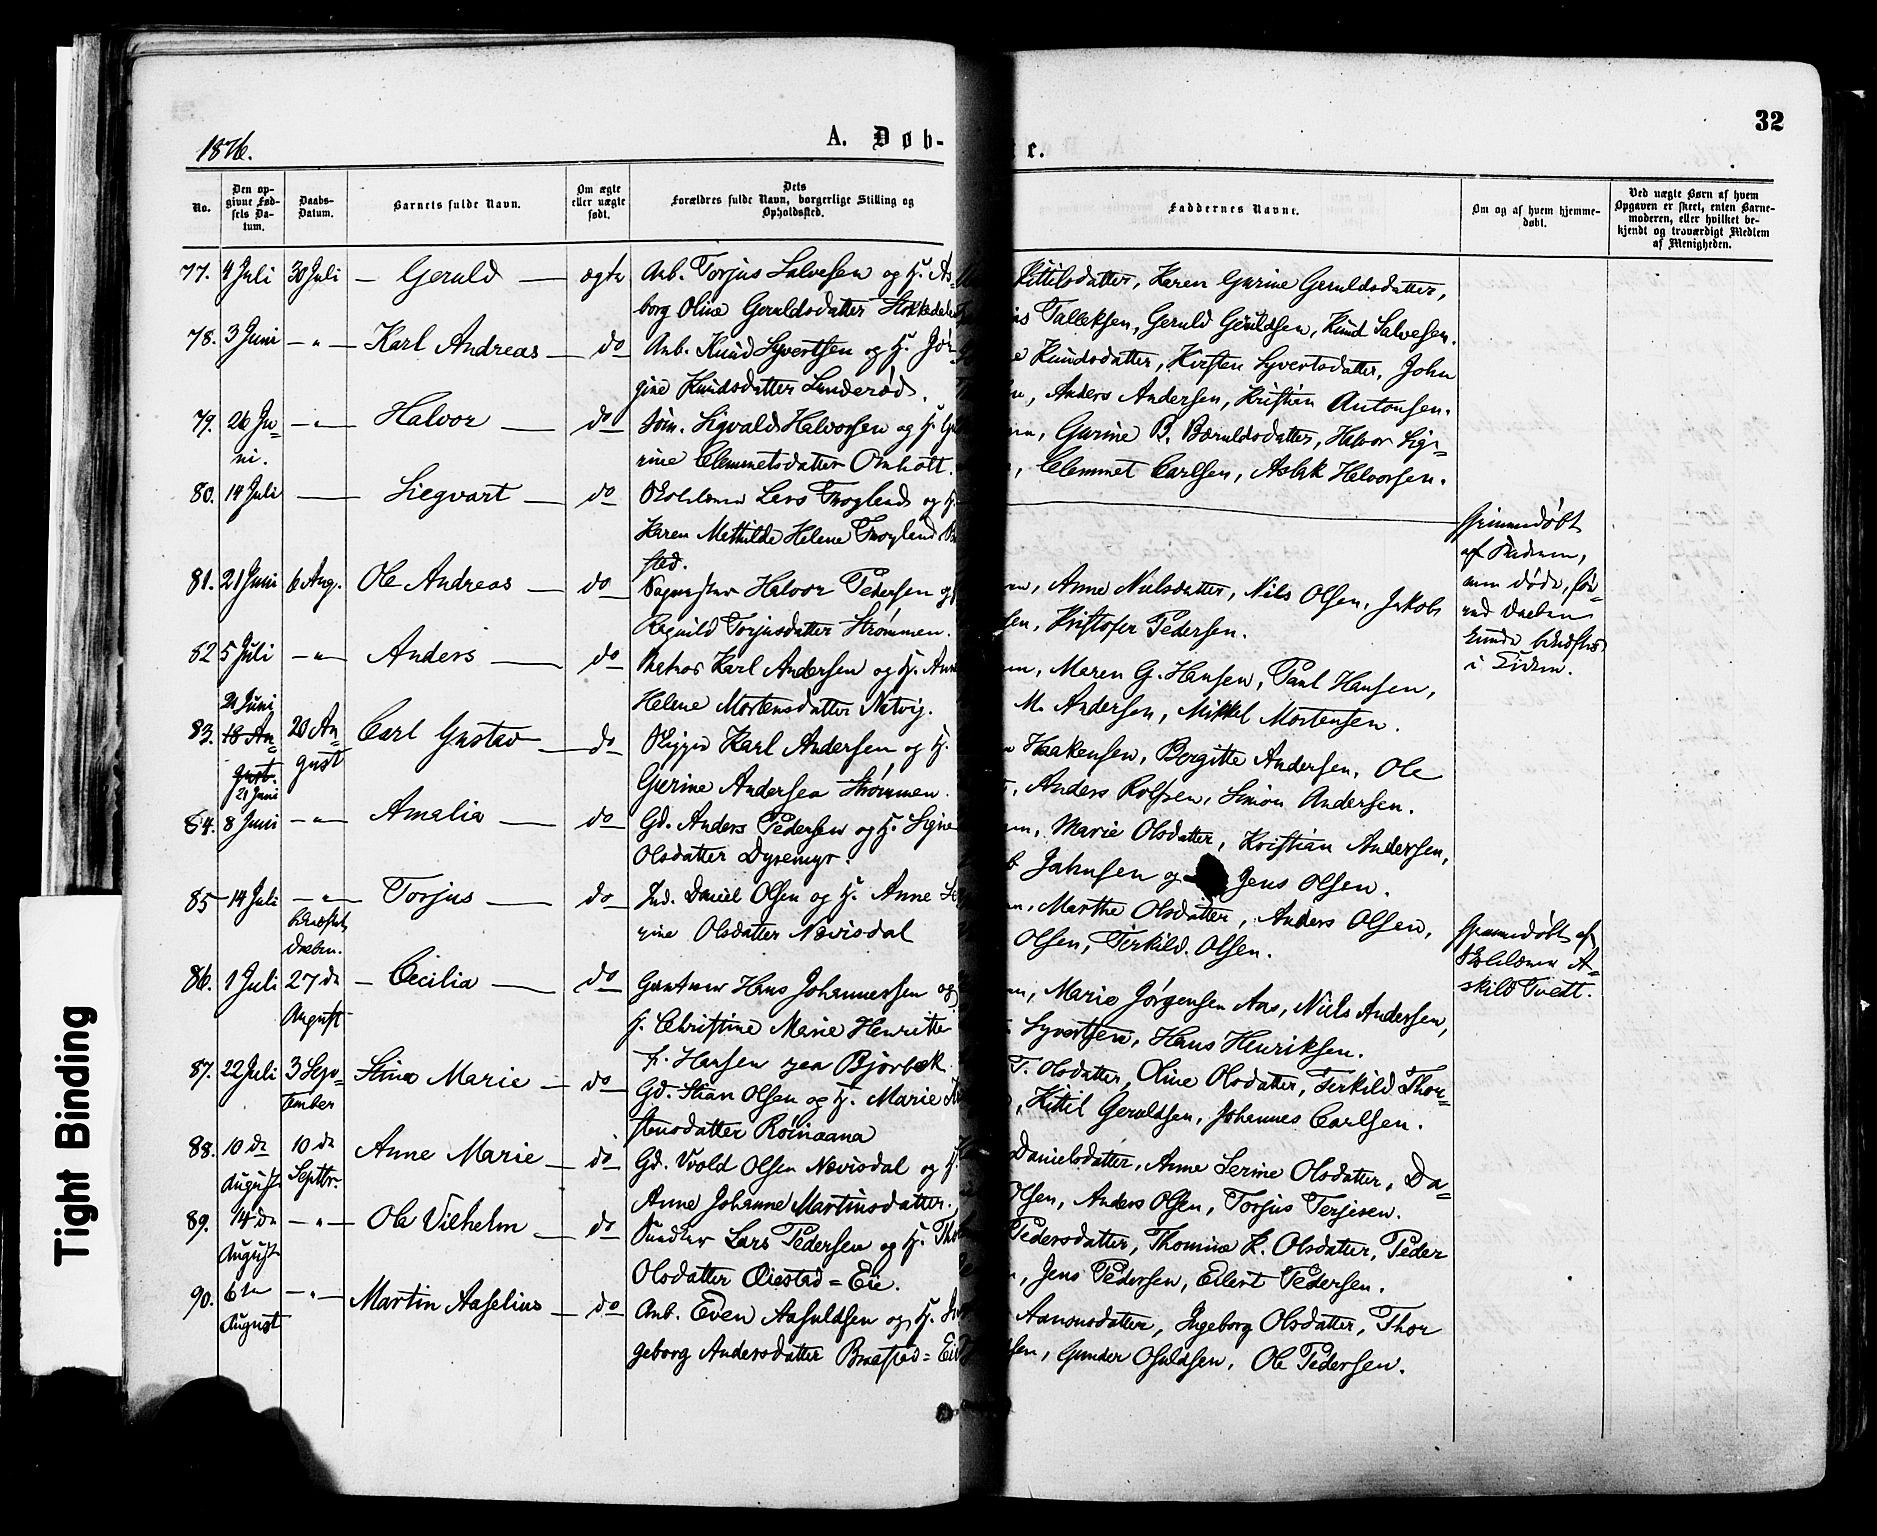 32
1876.
A. Døb-
e.
No.
Den op-
givne Fød-
sels Da-
tum.
Daabs-
Datum.
Barnets fulde Navn.
Om ægte
eller uægte
født.
Dets
Forældres fulde Navn, borgerlige Stilling og
Opholdssted.
Faddernes Navne.
Om og af hvem hjemme-
døbt.
Ved uægte Børn af hvem
Opgaven er skeet, enten Barne-
moderen, eller hvilket be-
kjendt og troværdigt Medlem
af Menigheden.
77. 4 Juli 30 Juli — Gerald — ægte Arb. Torjus Salvesen og H. As-
borg Oline Geruldsdatter
Kittilsdatter, Karen Gurine Geruldsdatter,
Tallaksen, Geruld Geruldsen, Knud Salvesen.
78. 3 Juni —"— Karl Andreas — do Arb. Knud Syvertsen og H. Jør-
gine Knudsdatter Lunderød.
Knudsdatter, Kirsten Syvertsdatter, John
Anders Andersen, Kristian Antonsen.
79. 26 Ju-
ni. —"— Halvor — do Tøm. Sigvald Halvorsen og H. Gu-
rine Clemmetsdatter Omholt.
Gurine B. Bæruldsdatter, Halvor Sig-
Clemmet Carlsen, Aslak Halvorsen.
80. 14 Juli — Siegvart — do Skolelærer Lars Froglend og H.
Karen Mathilde Helene Froglend
sted.
Hjemmedøbt
af Faderen,
men døde, før-
end Daaben
kunde bekræftes
i Kirken.
81. 21 Juni 6 Aug. Ole Andreas — do Bagmester Halvor Pedersen og
Ragnild Torjusdatter Strømmen.
Anne Nielsdatter, Nils Olsen, Jakob
Kristofer Pedersen.
82 5 Juli —"— Anders — do Matros Karl Andersen og H. Anne
Helene Mortensdatter Natvig.
Maren G. Hansen, Paul Hansen,
M. Andersen, Mikkel Mortensen.
21 Juni
83. 18 Au-
gust.
21 Juni
20 Au-
gust
Carl Gustav — do Skipper Karl Andersen og H.
Gurine Andersen Strømmen.
Haakensen, Bergitte Andersen, Ole
Anders Rolfsen, Simon Andersen.
84. 8 Juni —"— Amalia — do Gd. Anders Pedersen og H. Signe
Olsdatter Dyremyr.
Marie Olsdatter, Kristian Andersen,
Jahnsen og Jens Olsen.
85 14 Juli —"—
bekræftet
Daaben.
Torjus — do Ind. Daniel Olsen og H. Anne Se-
rine Olsdatter Nævisdal
Marthe Olsdatter, Anders Olsen,
Olsen, Terkild Olsen.
Hjemmedøbt af
Skolelærer A-
skild Tvedt.
86. 1 Juli 27 de
August
— Cecilia — do Gartner Hans Johannessen og
H. Christine Marie Henriette
f. Hansen paa Bjorbæk
Marie Jørgensen Aas, Niels Andersen,
Syvertsen, Hans Henriksen.
87. 22 Juli 3 Sep-
tember
Stina Marie — do Gd. Stian Olsen og H. Marie
stensdatter
T. Olsdatter, Oline Olsdatter, Terkild Thor-
Kittil Geruldsen, Johannes Carlsen.
88. 10 de
August
10 de
Septbr.
Anne Marie — do Gd. Vrold Olsen Nævisdal og H.
Anne Johanne Martinsdatter.
Danielsdatter, Anne Serine Olsdatter, Da-
Olsen, Anders Olsen, Torjus Terjesen.
89. 14 de
August
—"— Ole Vilhelm — do Snedker Lars Pedersen og H. Tho
Olsdatter Øiestad=Eie.
Pedersdatter, Thomine K. Olsdatter, Peder
Jens Pedersen, Eilert Pedersen.
90. 6te
August
—"— Martin Aaselius — do Arb. Even Aasuldsen og H. In-
geborg Andersdatter Braastad=Eie
Aanonsdatter, Ingeborg Olsdatter, Thor
Gunder Osuldsen, Ole Pedersen.
Tight Binding